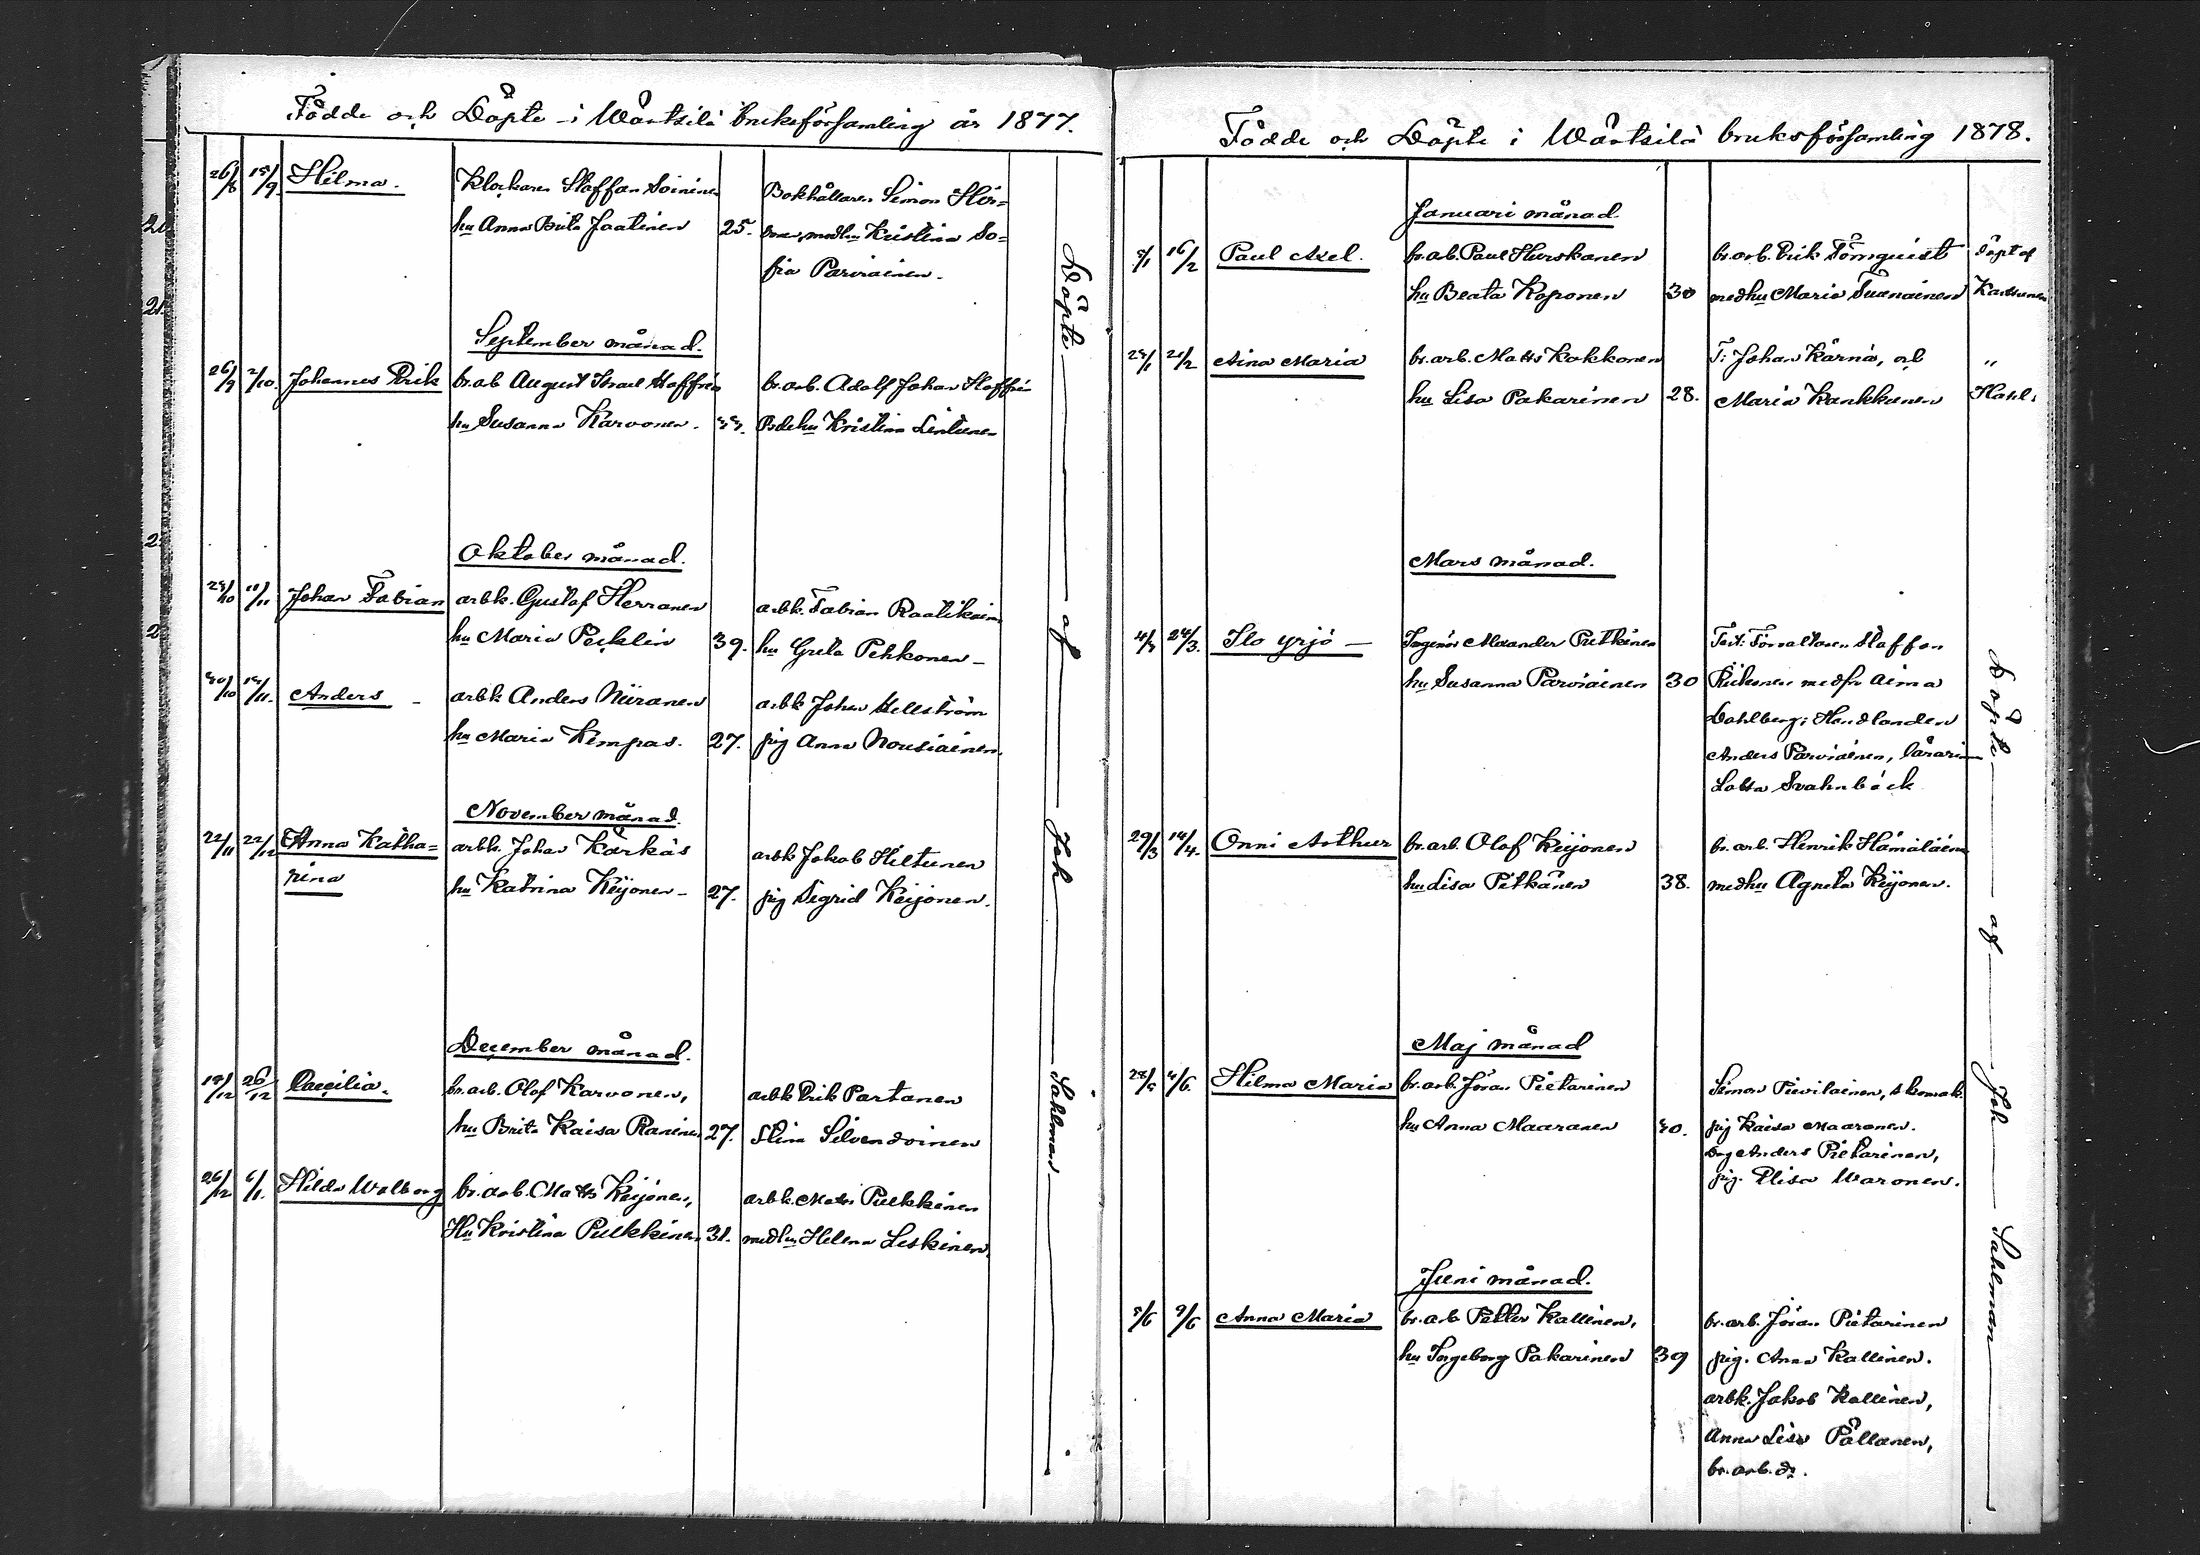 Födde och Döpte i Wärtsilä bruksförsamling år 1877.
26/8 15/9 Hilma. Klockaren Staffan Soininen Bokhållaren Simon Hir=
hu Anna Brita Jaatinen 25. medhu Kristina So=
fia Parviainen.
September månad.
26/9 7/10. Johannes Erik br. ab August Israel Staffrén br. arb. Adolf Johan Staffrén
hu Susanna Karvonen. 33. hu Kristina Lintunen
Oktober månad.
29/10 11/11 Johan Fabian arbk. Gustaf Herranen arbk. Fabian Raatikain
hu Maria Pecklin 39. hu Greta Pehkonen
30/10 Anders arbk Anders Niiranen arbk Johan Hellström
hu Maria Kempas. 27. pig Anna Nousiainen.
November månad.
22/11 22/12 Anna Katha= arbk. Johan Kärkäs arbk Jakob Hiltunen
rina hu Katrina Keijonen 27. pig Sigrid Keijonen.
December månad.
19/12 26/12 Caecilia. br. arb. Olof Karvonen, arbk Erik Partanen
hu Brita Kaisa Raninen 27. Stina Silvendoinen
26/12 6/1. Hilda Walborg br. arb. Matts Keijonen, arbk. Matts Pulkkinen
Hu Kristina Pulkkinen 31. medhu Helena Leskinen.
Döpte af Joh Sahlman
Födde och Döpte i Wärtsilä bruksförsamling 1878.
Januari månad.
5/1 16/2 Paul Axel. br. ab. Paul Hurskanen br. arb. Erik Törnquist döpt af
hu Beata Koponen 30 medhu Maria Tuunainen Karttunen
29/1 21/2 Aina Maria br. arb. Matts Kokkonen T: Johan Kärnä, och "
hu Lisa Pakarinen 28. Maria Kankkunen
Mars månad.
4/3 24/3. Ilo Yrjö Ingeniör Alexander Pitkänen Test: Förvaltaren Staffan
hu Susanna Parviainen 30 medfr Aina
Dahlberg; Handlanden
Anders Parviainen, lärarinn
Lotta Svahnbäck
29/3 14/4. Onni Arthur br. arb. Olof Keijonen br. arb. Henrik Hämäläinen
hu Lisa Pitkänen 38. medhu Agneta Keijonen.
Maj månad
28/5 4/6. Hilma Maria br. arb. Jöran Pietarinen Simon Pivilainen, skomak.
hu Anna Maaranen 40. pig Kaisa Maaranen.
drg Anders Pietarinen,
pig. Elisa Waronen.
Juni månad.
5/6 9/6 Anna Maria br. arb Petter Kallinen, br. arb. Jöran Pietarinen
hu Ingeborg Pakarinen 39 pig. Anna Kallinen.
arbk. Jakob Kallinen,
Anna Lisa Pöllänen,
br. arb. dr.
Döpte af Joh Sahlman